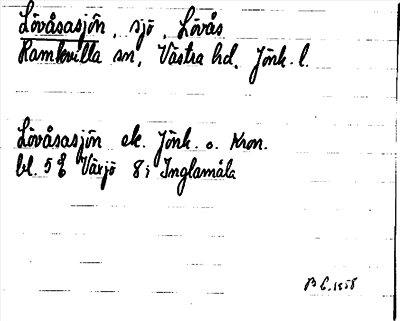 Lövåsasjön, sjö, Lövås
Ramkvilla sn, Västra hd, Jönk. l.
Lövåsasjön ek. Jönk. o. Kron.
bl. 5 E Växjö 8 i Inglamåla
B E. 1958